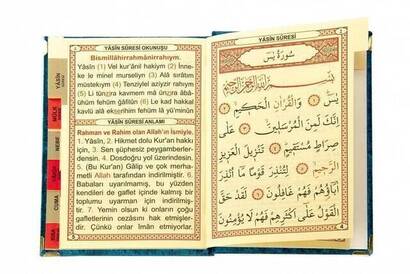 YÂSÎN SÛRESİ OKUNUŞU
Bismillâhirrahmânirrahıym.
Yâsîn (1) Vel kur'ânil hakiym (2) İnne-
ke le minel murseliyn (3) Alâ sırâtım
müstekıym (4) Tenziylel aziyzir rahıym
(5) Li tünzira kavmem mâ ünzira âbâ-
ühüm fehüm ğâfilûn (6) Le kad hakkal
kavlü alâ ekserihim fehüm lâ yü'minûn
YÂSÎN SÛRESİ ANLAMI
Rahman ve Rahim olan Allah'ın İsmiyle.
1. Yâsîn, 2. Hikmet dolu Kur'an hakkı
için, 3. Sen şüphesiz peygamberler-
densin. 4. Dosdoğru yol üzerindesin.
5. (Bu Kur'an) Gâlip ve çok merha-
metli Allah tarafından indirilmiştir. 6.
Babaları uyarılmamış, bu yüzden
kendileri de gaflet içinde kalmış bir
toplumu uyarman için indirilmiştir.
7. Yemin olsun ki onların çoğu
gafletlerinin cezasını hak etmişler-
dir. Çünkü onlar îman etmiyorlar.
YÂSÎN
MÜLK
NEBE
CUMA
سُورَةُ يٰسٓ
بِسْمِ اللّٰهِ الرَّحْمٰنِ الرَّحِيمِ
يٰسٓ ﴿١﴾ وَالْقُرْاٰنِ الْحَكِيمِ ﴿٢﴾
اِنَّكَ لَمِنَ الْمُرْسَلِينَ ﴿٣﴾ عَلٰى
صِرَاطٍ مُسْتَقِيمٍ ﴿٤﴾ تَنْزِيلَ الْعَزِيزِ
الرَّحِيمِ ﴿٥﴾ لِتُنْذِرَ قَوْمًا مَٓا اُنْذِرَ
اٰبَٓاؤُهُمْ فَهُمْ غَافِلُونَ ﴿٦﴾ لَقَدْ حَقَّ
الْقَوْلُ عَلٰٓى اَكْثَرِهِمْ فَهُمْ لَا يُؤْمِنُونَ
4